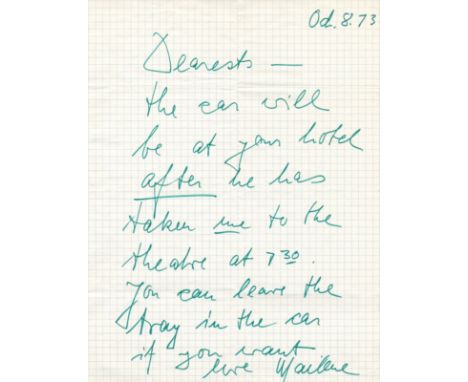 Oct. 8. 73
Dearests —
the car will
be at your hotel
after he has
taken me to the
theatre at 7 30.
You can leave the
tray in the car
if you want
love Marlene